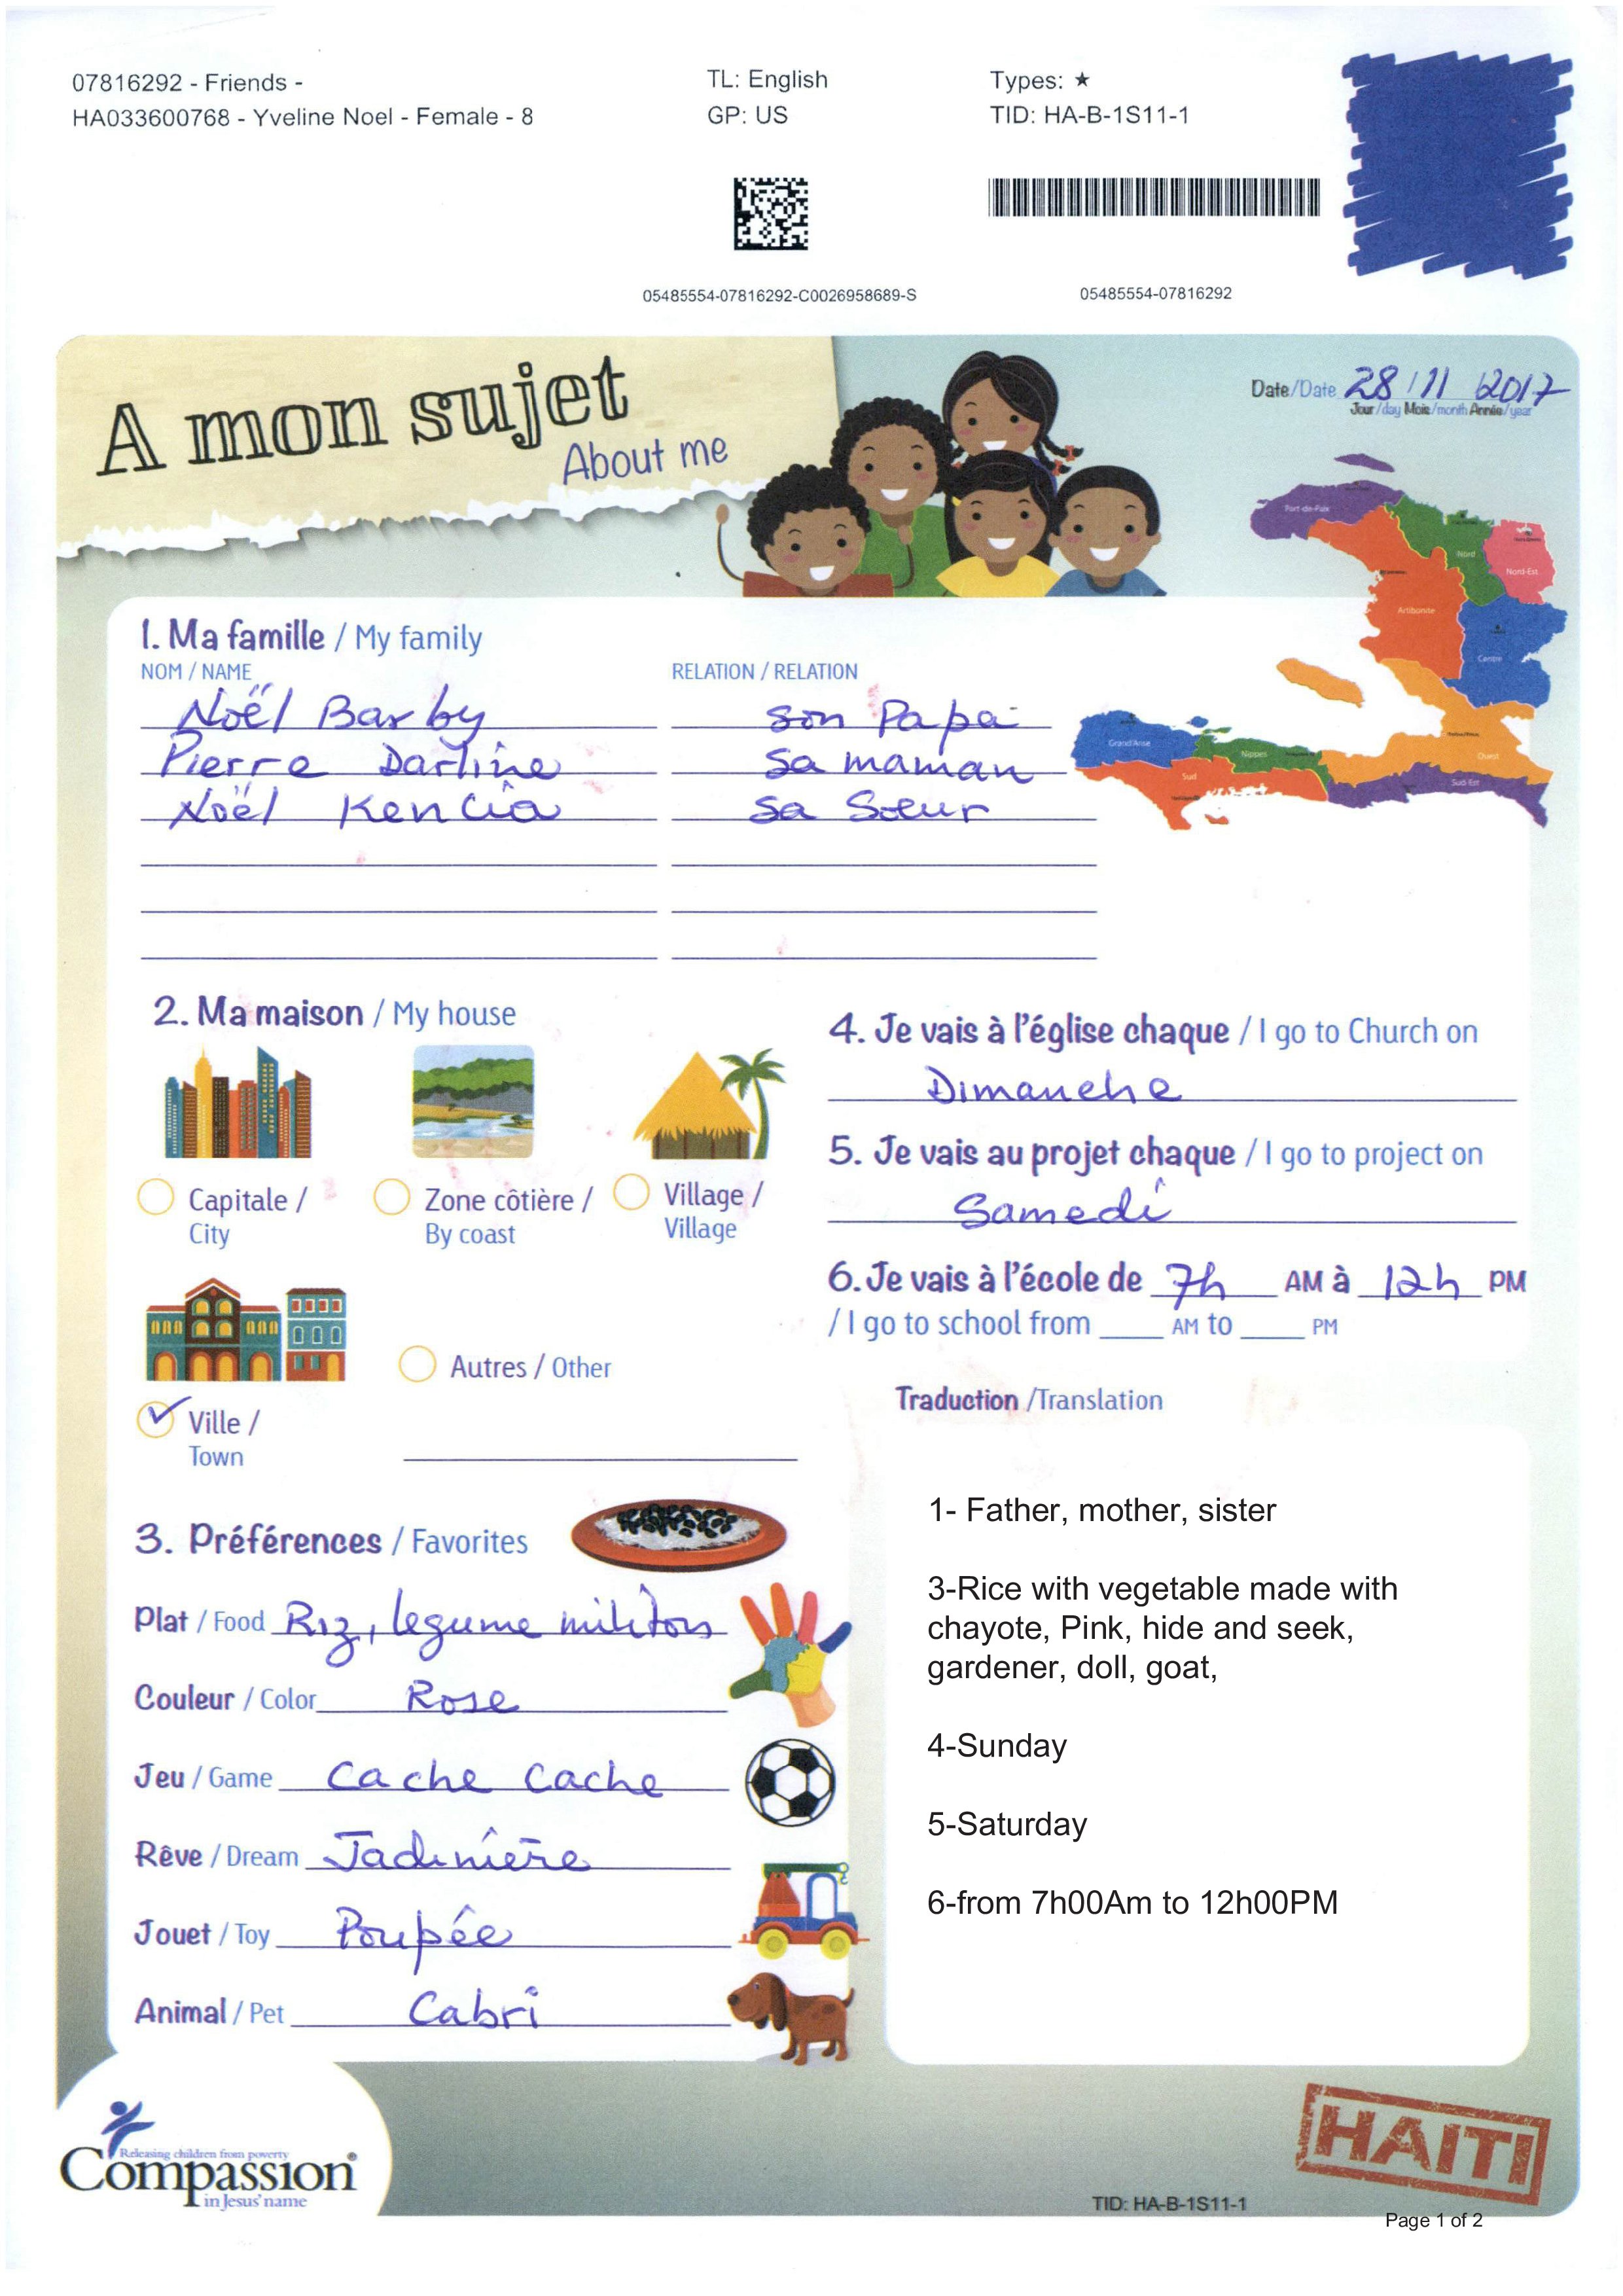 07816292 - Friends -
HA033600768 - Yveline Noel - Female - 8
TL: English
GP: US
Types: ★
TID: HA-B-1S11-1
05485554-07816292-C0026958689-S
05485554-07816292
A mon sujet
About me
Date/Date 28/11/2017
Jour/day Mois/month Année/year
Port-de-Paix
Nord
Nord-Est
Artibonite
Centre
Grand'Anse
Nippes
Ouest
Sud
Sud-Est
1. Ma famille / My family
NOM / NAME RELATION / RELATION
Noël Barby son Papa
Pierre Darline sa maman
Noël Kencia sa Sœur
2. Ma maison / My house
Capitale /
City
Zone côtière /
By coast
Village /
Village
Ville /
Town
Autres / Other
3. Préférences / Favorites
Plat / Food Riz, legume militon
Couleur / Color Rose
Jeu / Game Cache Cache
Rêve / Dream Jadinière
Jouet / Toy Poupée
Animal / Pet Cabri
4. Je vais à l'église chaque / I go to Church on
Dimanche
5. Je vais au projet chaque / I go to project on
Samedi
6. Je vais à l'école de 7h AM à 12h PM
/ I go to school from ____ AM to ____ PM
Traduction /Translation
1- Father, mother, sister
3-Rice with vegetable made with
chayote, Pink, hide and seek,
gardener, doll, goat,
4-Sunday
5-Saturday
6-from 7h00Am to 12h00PM
Releasing children from poverty
Compassion®
in Jesus' name
HAITI
TID: HA-B-1S11-1
Page 1 of 2